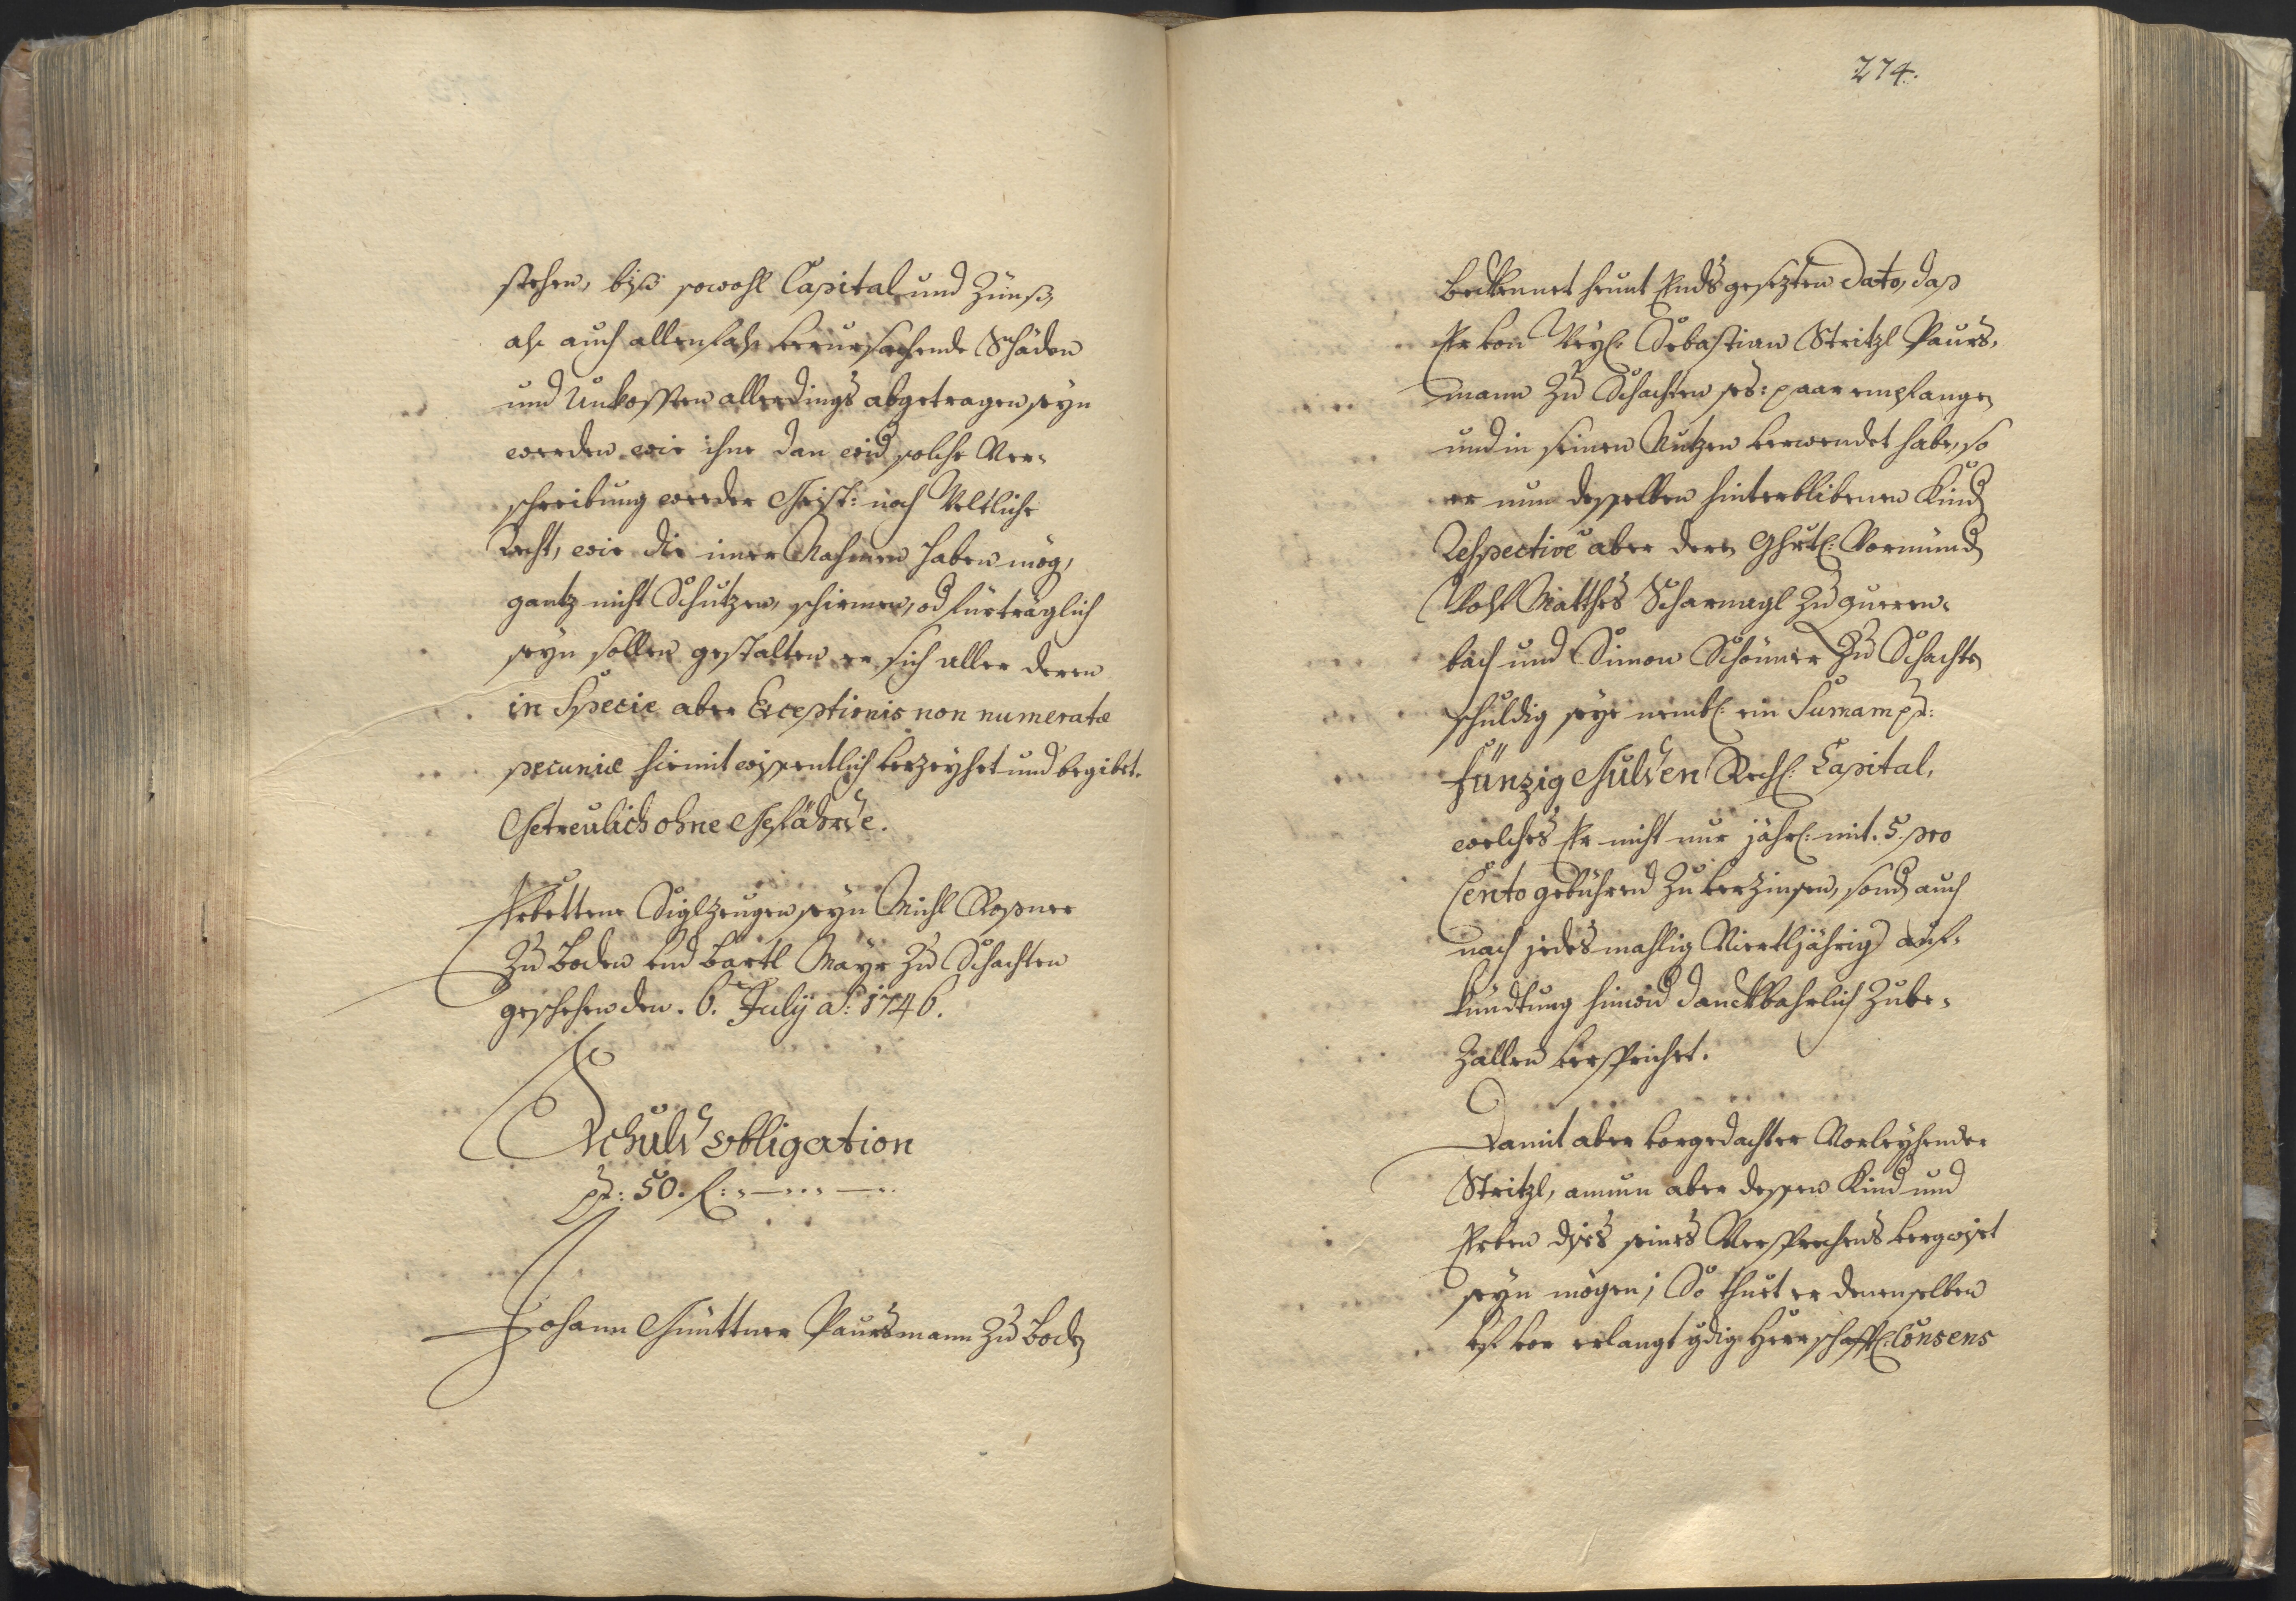 stehen, biß sowohl Capital und Zünß,
als auch allenfahls verursachende Schäden
und Unkossten allerdings abgetragen seyn
werden, wie ihne dan wid solche Ver-
schreibung weeder Geist: noch Weltliche
Recht, wie die imer Nahmen haben mög,
gantz nicht Schutzen, schirmen, od fürträglich
seyn sollen gestalten er sich aller deren
in Specie aber Exceptionis non numeratæ
pecuniæ hiemit wissentlich verzeyhet und begibet.
Getreulich ohne Gefährde.
Erbettene Siglzeugen seyn Michl Rosner
zu Boden und Bartl Mayr zu Schachten
geschehen den. 6. July a: 1746.
Schuld obligation
pr: 50. f:
Johann Günttner Paursmann zu Boden
274.
Beckennet heunt Endsgesezten Dato, das
Er von Weyl: Sebastian Stritzl Paurs-
mann zu Schachten s: paar empfangen
und in seinen Nutzen verwendet habe, so
er nun desselben hinterblibenen Kind
Respective aber deren Ghrtl: Vormund
Wolf Matthes Scharnagl zu Querren-
bach und Simon Schönner zu Schachten
schuldig seye nembl: ein Suma m pr:
fünzig Gulden Reichl: Capital,
welches Er nicht nur jährl: mit. 5. pro
Cento gebührend zu verzinsen, sond auch
nach jedesmahlig Viertljährig auf-
kündtung hinwid danckbahrlich zube-
zallen verspricht.
Damit aber vorgedachter Vorleyhender
Stritzl, annun aber dessen Kind und
Erben diss seines Versprechens vergwist
seyn mögen; So thuet er denenselben
bis vor erlangt gdig Herrschafftl: Consens